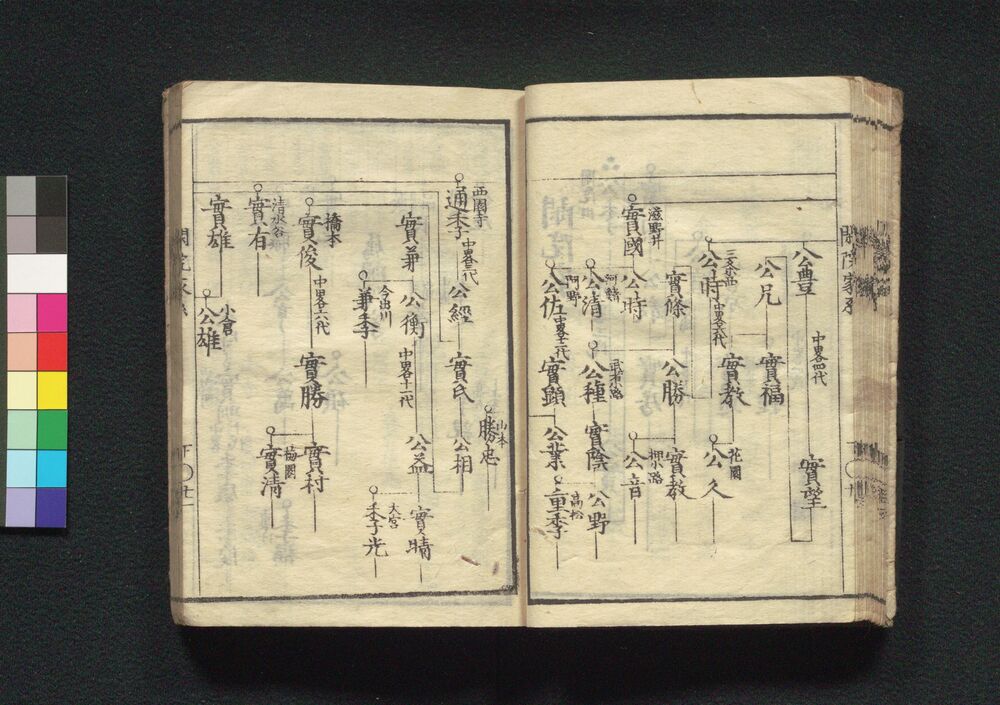 閑院家系
公豊
中畧四代
實望
公兄
實福
三条西
公時
中畧六代
實教
花園
公久
實條
公勝
實教
押小路
公音
滋野井
實國
公時
河鰭
公清
武者小路
公種
實陰
公野
阿野
公佐
中畧十二代
實顕
公業
高松
重季
西園寺
通季
中畧三代
公經
實氏
公相
山本
勝忠
實兼
公衡
中畧十一代
公益
實晴
今出川
兼季
大宮
季光
橋本
實俊
中畧六代
實勝
實村
梅園
實清
清水谷
實有
實雄
小倉
公雄
閑院家系
下
廿一